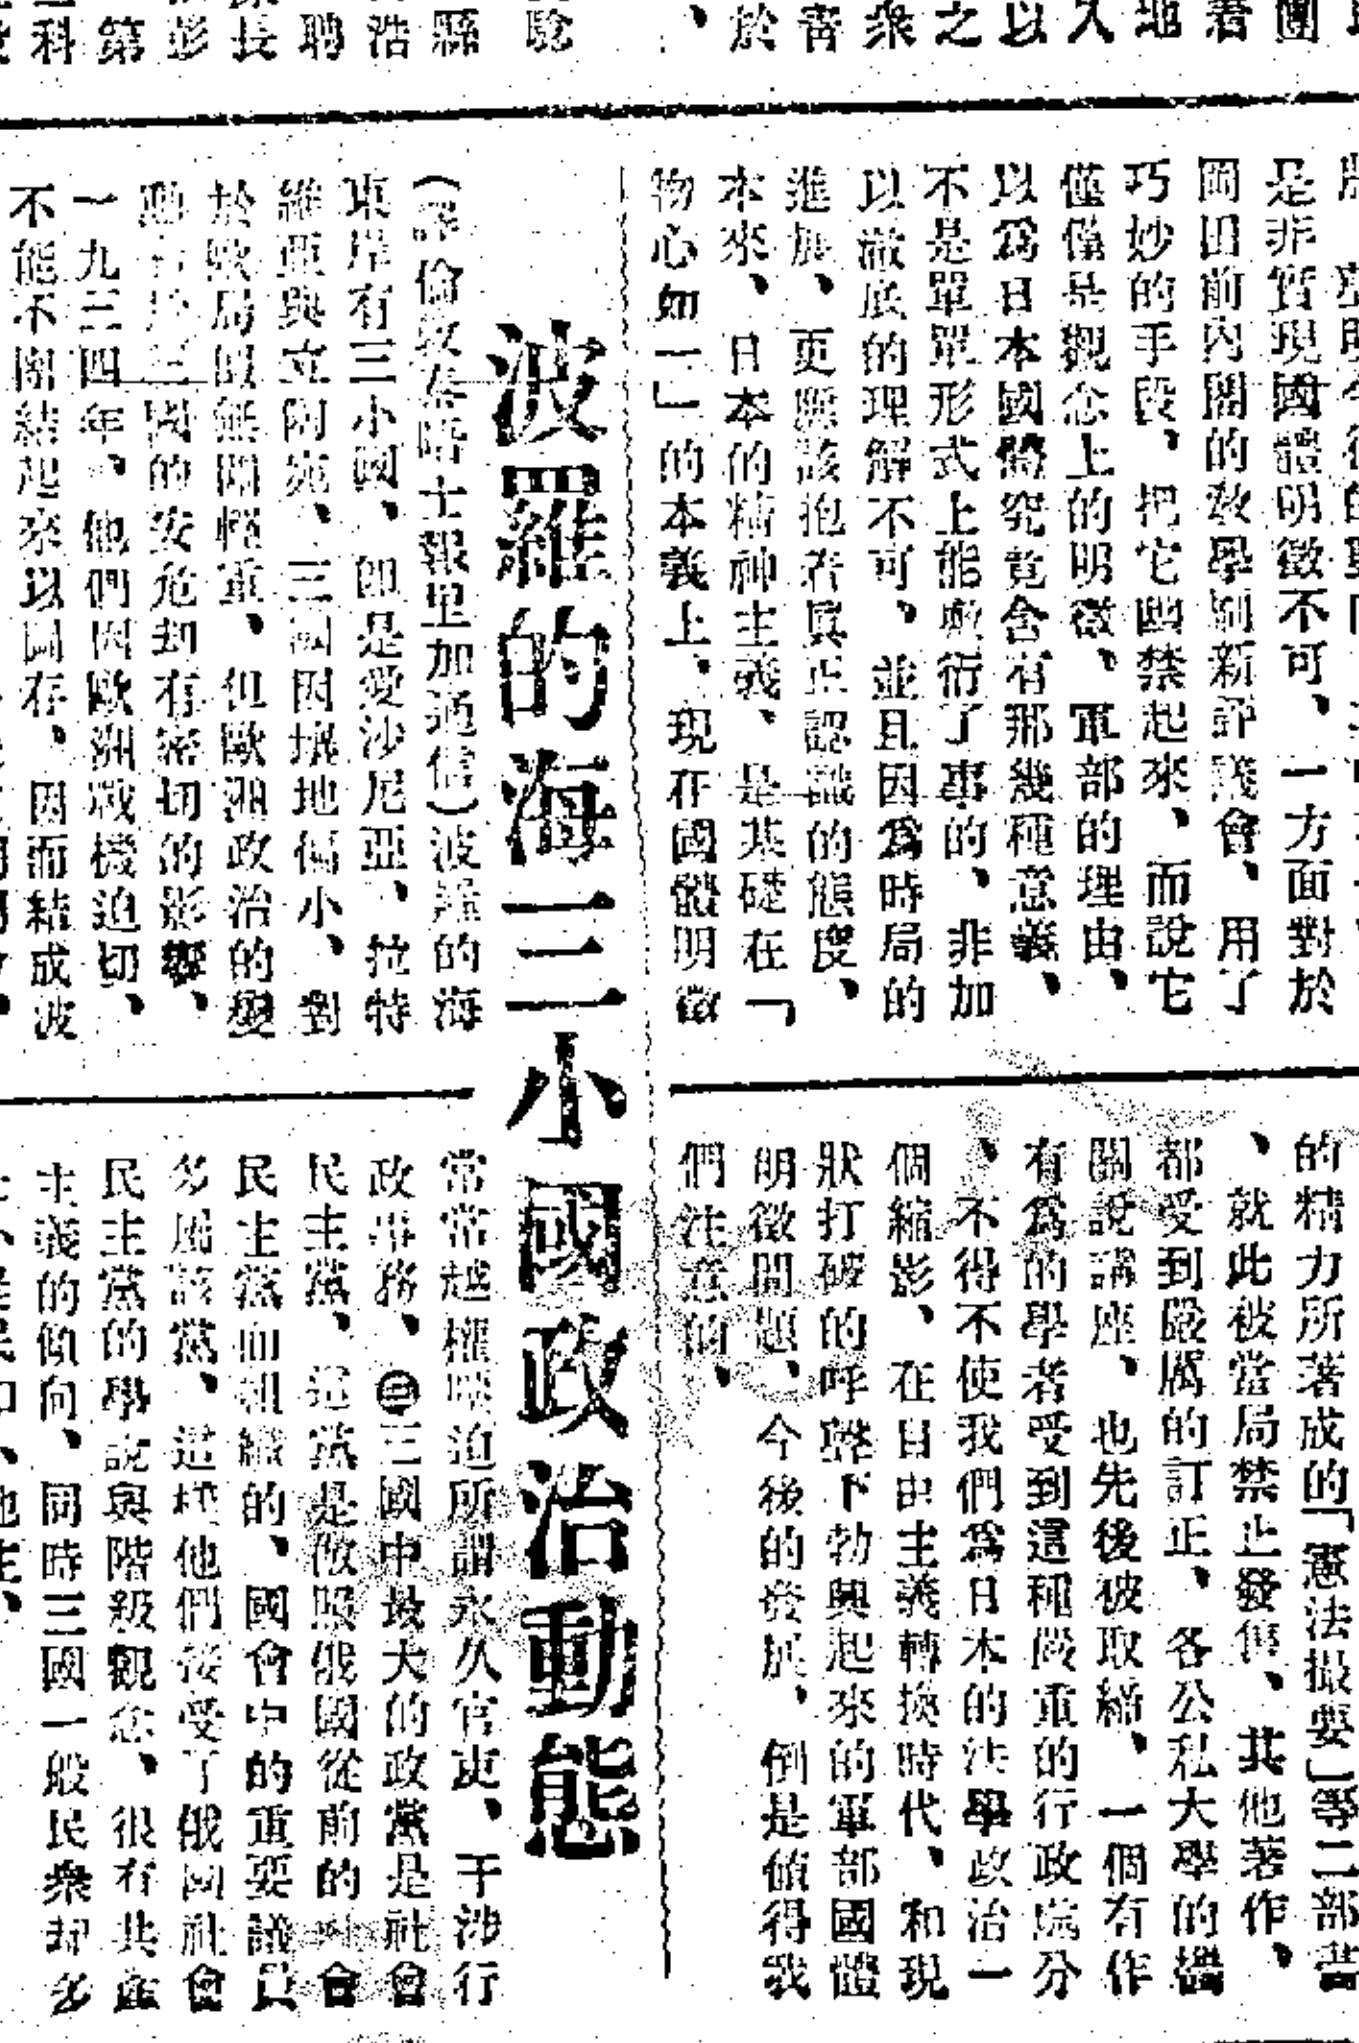 是非實現國體明徵不可、一方面對於
岡田前內閣的教學刷新評議會、用了
巧妙的手段、把它幽禁起來、而說它
僅僅是觀念上的明徵、軍部的理由、
以爲日本國體究竟含有那幾種意義、
不是單單形式上能敷衍了事的、非加
以澈底的理解不可、並且因爲時局的
進展、更應該抱着眞正認識的態度、
本來、日本的精神主義、是基礎在「
物心如一」的本義上、現在國體明徵
的精力所著成的「憲法撮要」等二部書
、就此被當局禁止發售、其他著作、
都受到嚴厲的訂正、各公私大學的機
關說講座、也先後被取締、一個有作
有爲的學者受到這種嚴重的行政處分
、不得不使我們爲日本的法學政治一
個縮影、在自由主義轉換時代、和現
狀打破的呼聲下勃興起來的軍部國體
明徵問題、今後的發展、倒是値得我
們注意的、
波羅的海三小國政治動態
(譯倫敦泰晤士報里加通信)波羅的海
東岸有三小國、卽是愛沙尼亞、拉特
維亞與立陶宛、三國因壤地偏小、對
於歐局似無關輕重、但歐洲政治的變
動於三國的安危却有密切的影響、
一九三四年、他們因歐洲戰機迫切、
不能不團結起來以圖存、因而結成波
常常越權壓迫所謂永久官吏、干涉行
政事務、㊂三國中最大的政黨是社會
民主黨、這黨是倣照俄國從前的社會
民主黨而組織的、國會中的重要議員
多屬該黨、這樣他們接受了俄國社會
民主黨的學說與階級觀念、很有共產
主義的傾向、同時三國一般民衆却多